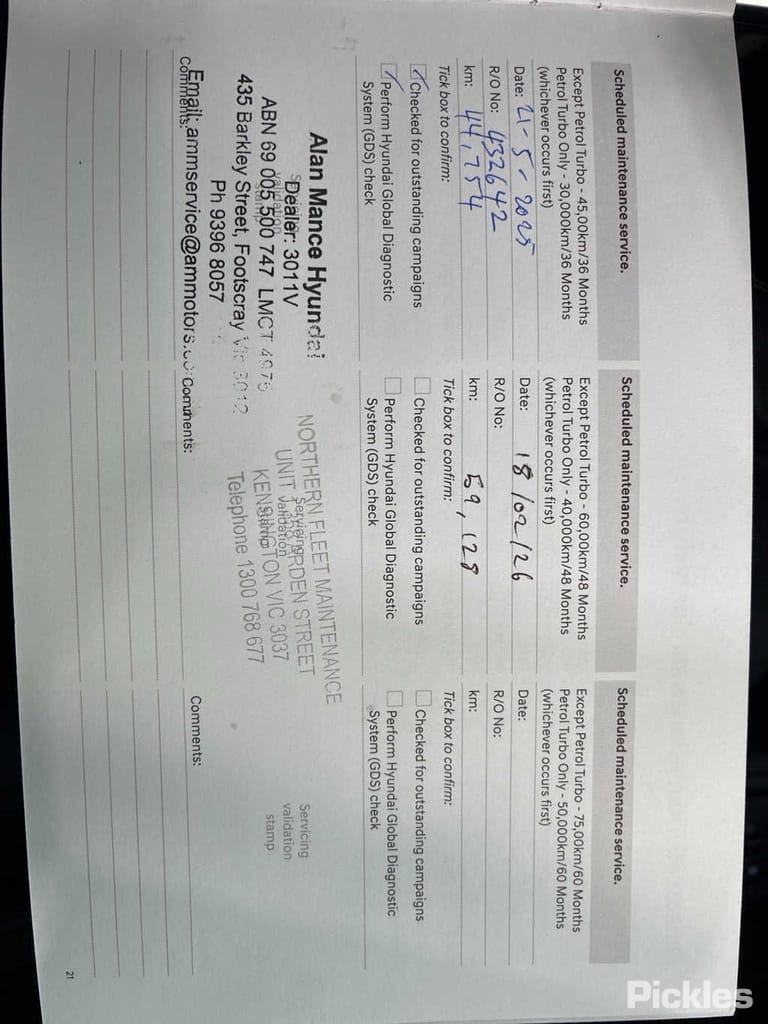 Scheduled maintenance service.
Except Petrol Turbo - 45,00km/36 Months
Petrol Turbo Only - 30,000km/36 Months
(whichever occurs first)
Date: 21-5-2025
R/O No: 432642
km: 44,754
Tick box to confirm:
Checked for outstanding campaigns
Perform Hyundai Global Diagnostic
System (GDS) check
Alan Mance Hyundai
Dealer: 3011V
ABN 69 005 500 747 LMCT 4975
435 Barkley Street, Footscray Vic 3012
Ph 9396 8057
Email: ammservice@ammotors.co
Comments:
Scheduled maintenance service.
Except Petrol Turbo - 60,00km/48 Months
Petrol Turbo Only - 40,000km/48 Months
(whichever occurs first)
Date: 18/02/26
R/O No:
km: 59,128
Tick box to confirm:
Checked for outstanding campaigns
Perform Hyundai Global Diagnostic
System (GDS) check
Servicing
validation
stamp
NORTHERN FLEET MAINTENANCE
UNIT STREET
KENSINGTON VIC 3037
Telephone 1300 768 677
Comments:
Scheduled maintenance service.
Except Petrol Turbo - 75,00km/60 Months
Petrol Turbo Only - 50,000km/60 Months
(whichever occurs first)
Date:
R/O No:
km:
Tick box to confirm:
Checked for outstanding campaigns
Perform Hyundai Global Diagnostic
System (GDS) check
Servicing
validation
stamp
Comments:
21
Pickles